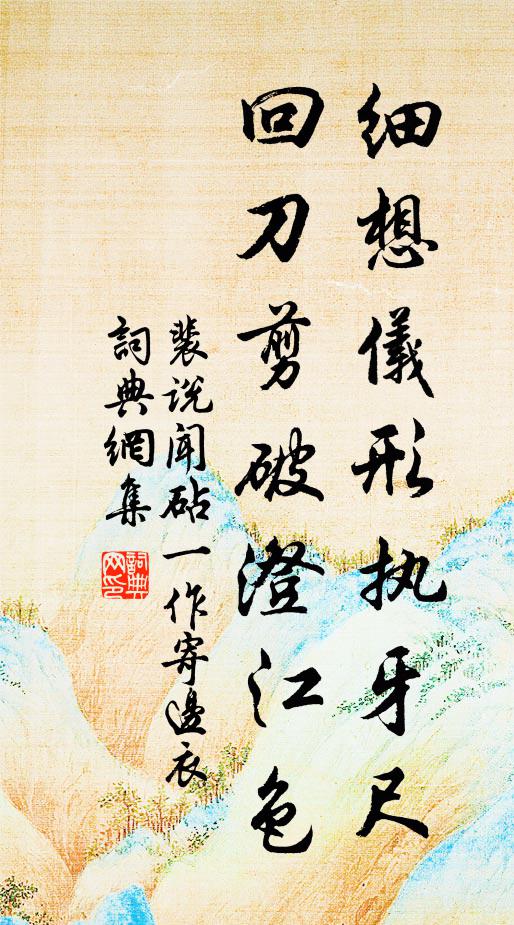 细想儀形执牙尺
回刀剪破澄江色
裴说闻砧一作寄邊衣
詞典網集
詞典网印